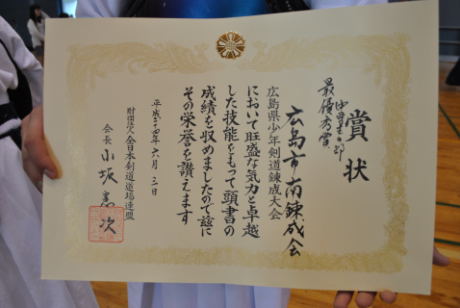 賞状
中学生の部
最優秀賞
広島市南錬成会
広島県少年剣道錬成大会
において旺盛な気力と卓越
した技能をもって頭書の
成績を収めましたので茲に
その栄誉を讃えます
平成二十四年六月三日
財団法人全日本剣道道場連盟
会長 小坂憲次